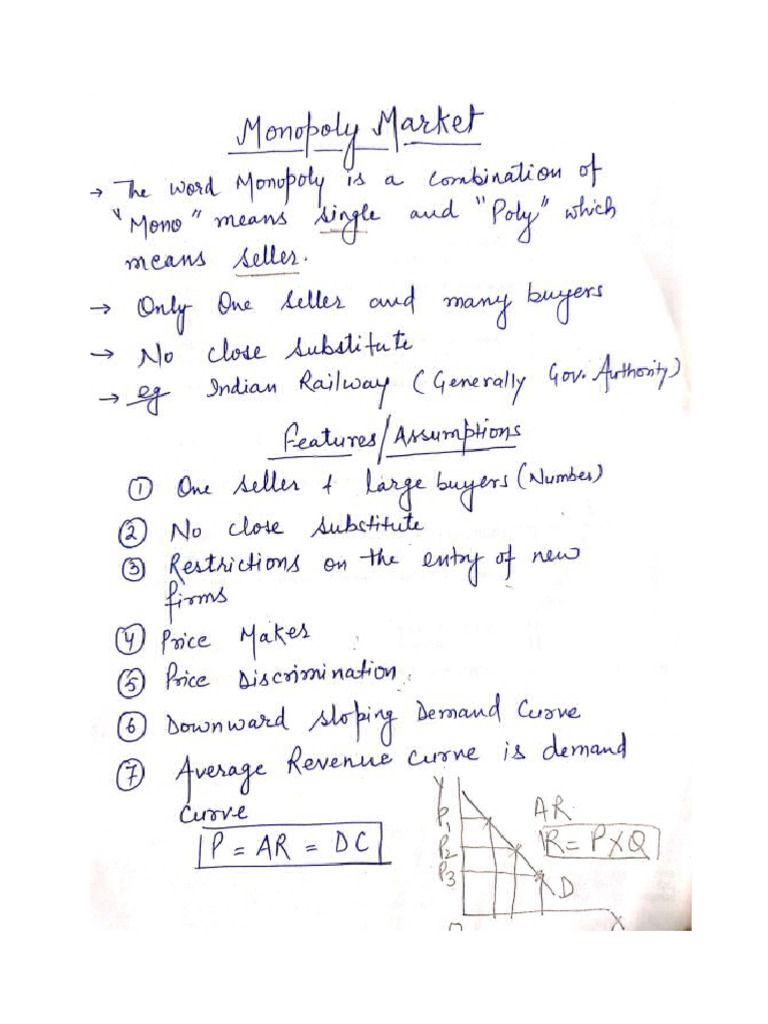 Monopoly Market
→ The word Monopoly is a combination of
"Mono" means single and "Poly" which
means seller.
→ Only One seller and many buyers
→ No close substitute
→ eg Indian Railway (Generally Gov. Authority)
Features/Assumptions
① One seller + large buyers (Number)
② No close substitute
③ Restrictions on the entry of new
firms
④ Price Maker
⑤ Price Discrimination
⑥ Downward sloping Demand Curve
⑦ Average Revenue curve is demand
curve
P = AR = DC
Y
P1
P2
P3
AR
R = P X Q
D
O
X